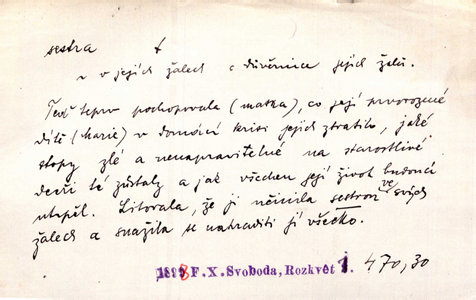 sestra †
~ v jejích žalech = důvěrnice jejich žalů.
Teď teprv pochopovala (matka), co její prvorozené
dítě (Marie) v domácí krisi jejich ztratilo, jaké
stopy zlé a nenapravitelné na starostlivé
dceři té zůstaly a jak všechen její život budoucí
utrpěl. Litovala, že ji učinila sestrou ve svých
žalech a snažila se nahraditi jí všecko.
1898 F. X. Svoboda, Rozkvět 1. 470,30